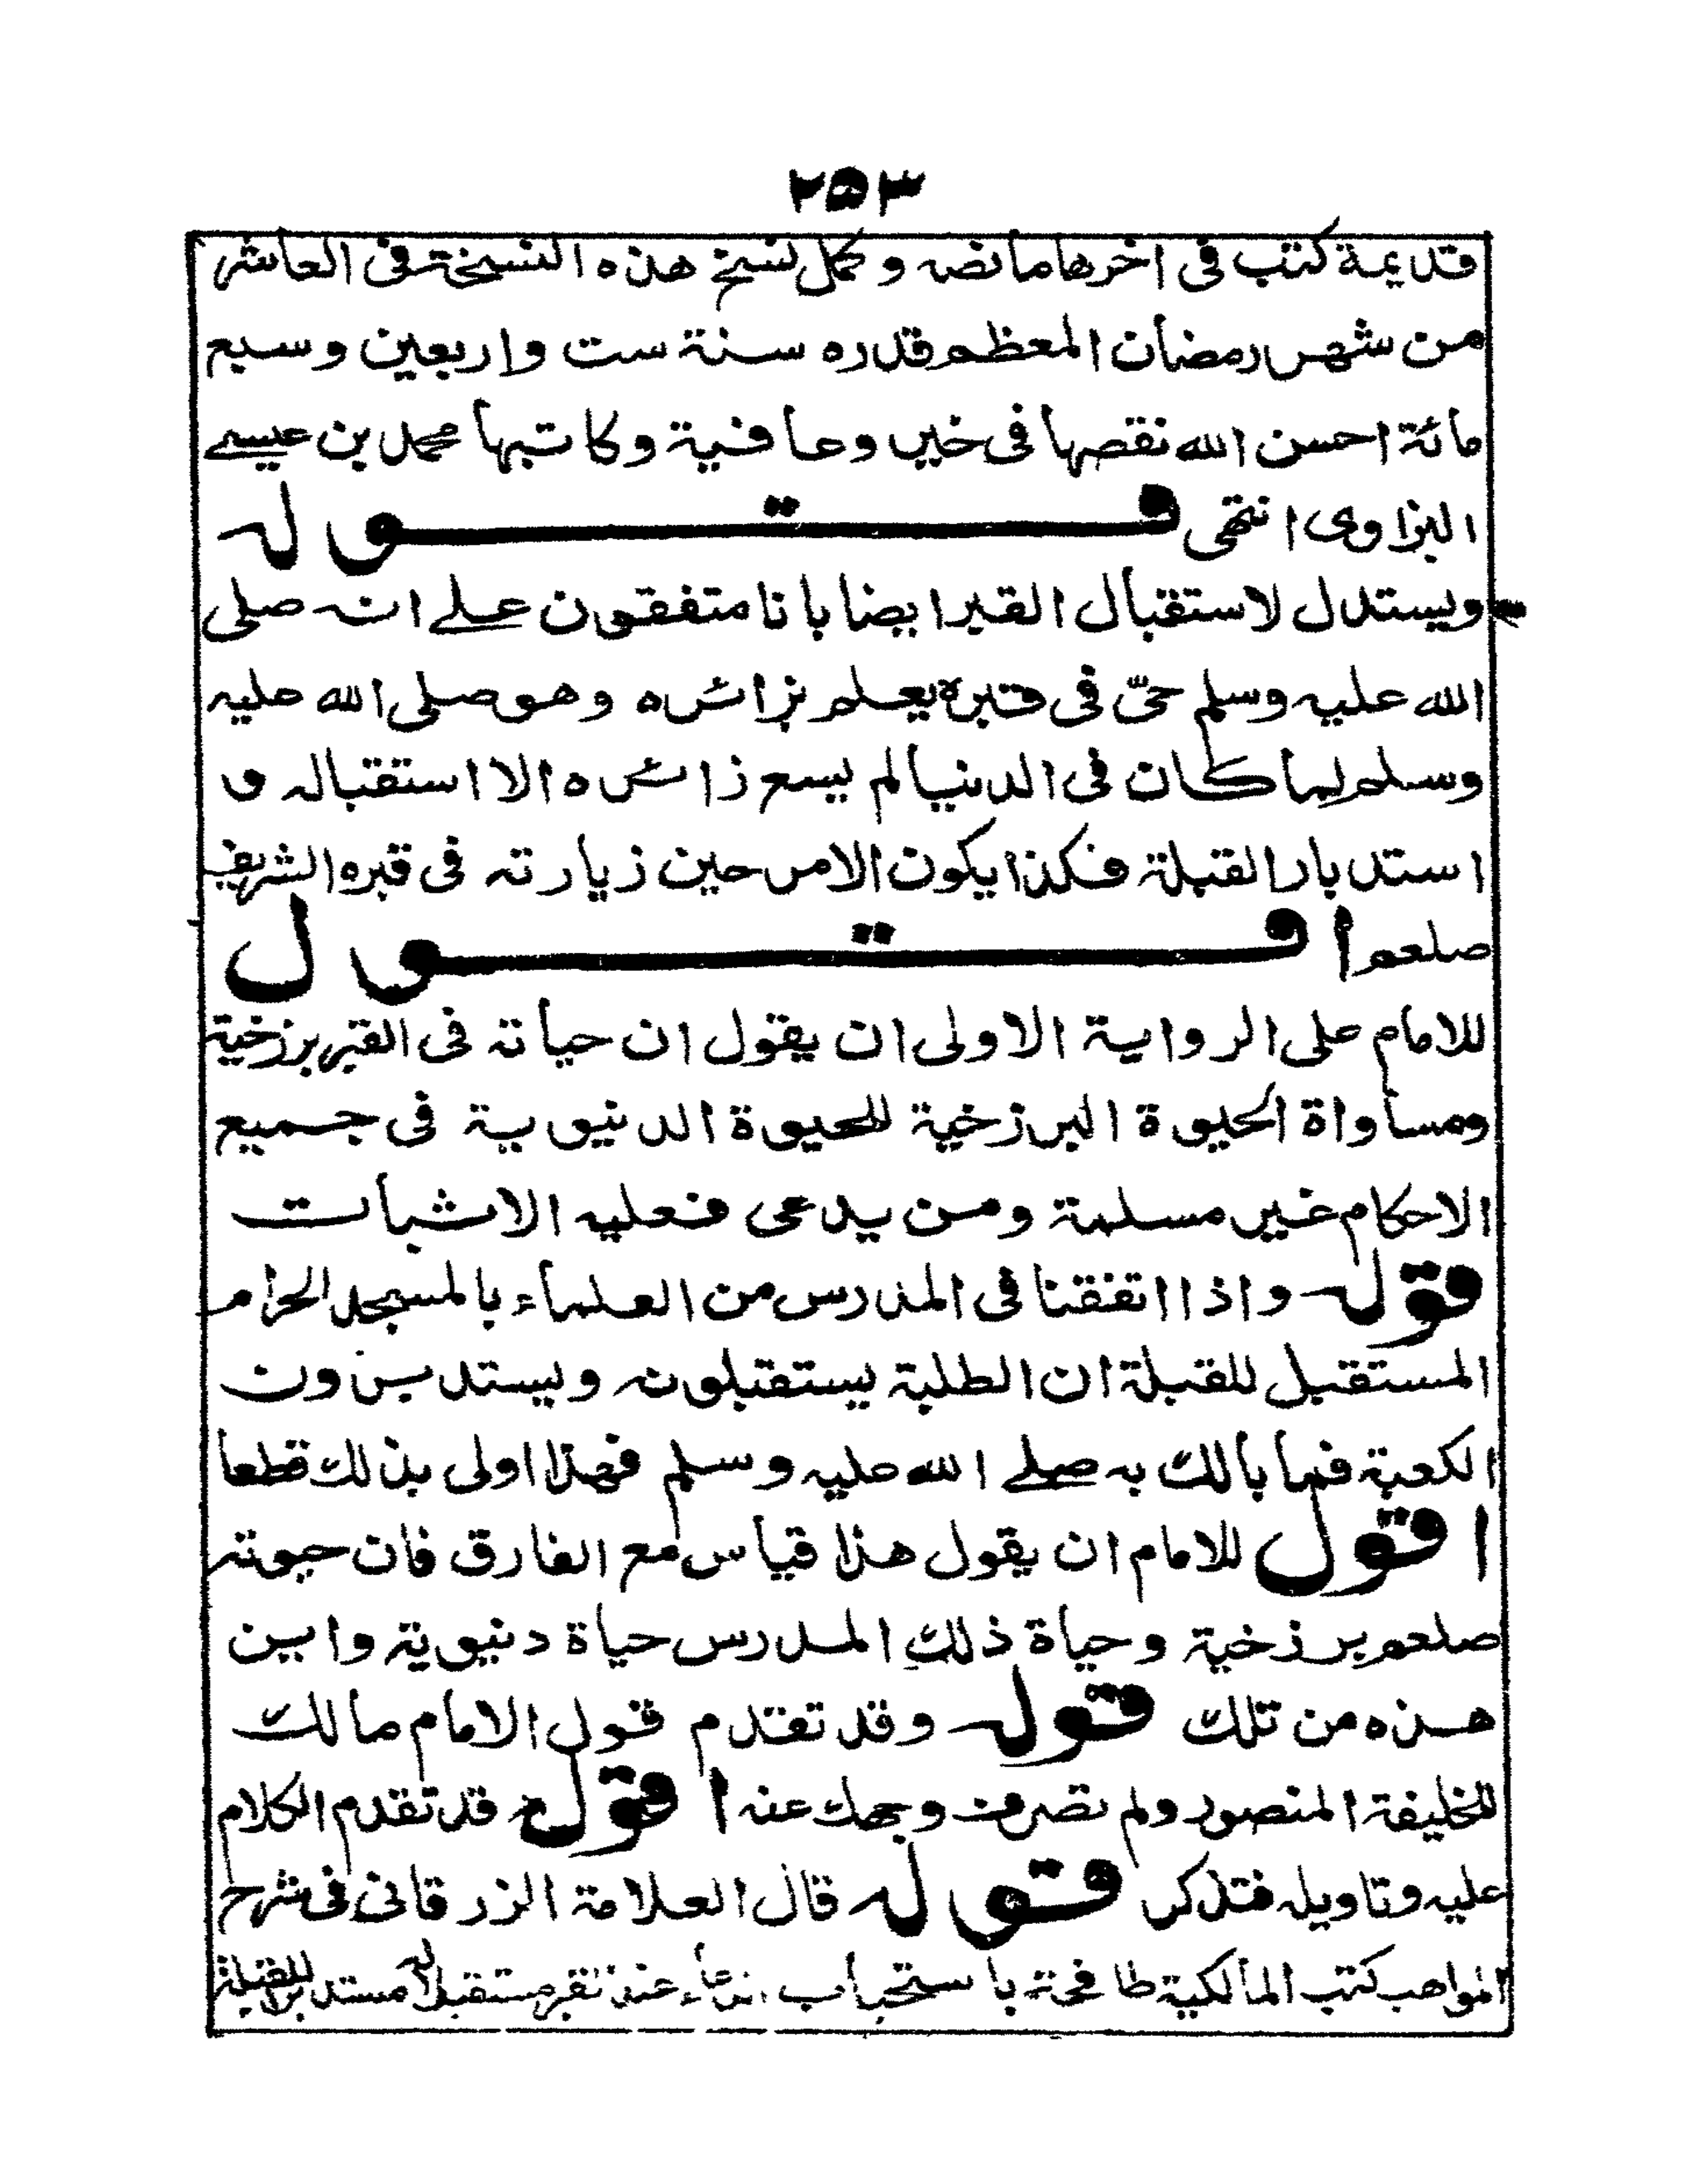 ٢٥٣
قديمة كتب فى اخرها مانصه وكمل نسخ هذه النسخة فى العاشر
من شهر رمضان المعظم قدره سنة ست واربعين وسبع
مائة احسن الله نقصها فى خير وعافية وكاتبها محمد بن عيسے
البزاوى انتهى قـــــولہ
ويستدل لاستقبال القبر ايضا بانا متفقون علے انہ صلى
الله عليہ وسلم حىّ فى قبره يعلم بزائره وهو صلى الله عليہ
وسلم لما كان فى الدنيا لم يسع زائره الا استقبالہ و
استدبار القبلة فكذا يكون الامر حين زيارتہ فى قبره الشريف
صلعم اقـــــول
للامام على الرواية الاولى ان يقول ان حياتہ فى القبر برزخية
ومساواة الحيوة البرزخية للحيوة الدنيوية فى جميع
الاحكام غير مسلمة ومن يدعى فعليہ الاثبات
قولہ واذا اتفقنا فى المدرس من العلماء بالمسجد الحرام
المستقبل للقبلة ان الطلبة يستقبلونہ ويستدبرون
الكعبة فما بالك بہ صلے الله عليہ وسلم فهذا اولى بذلك قطعا
اقول للامام ان يقول هذا قياس مع الفارق فان حيوتہ
صلعم برزخية وحياة ذلك المدرس حياة دنيوية واين
هذه من تلك قولہ وقد تقدم قول الامام مالك
للخليفة المنصور ولم تصرف وجهك عنہ اقول قد تقدم الكلام
عليہ وتاويلہ فتذكر قولہ قال العلامة الزرقانى فى شرح
المواهب كتب المالكية طافحة باستحباب الدعاء عند القبر مستقبلا لہ مستدبرا للقبلة